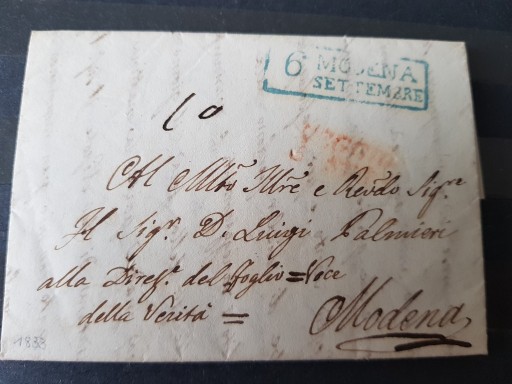 6 MODENA
SETTEMBRE
10
Al Mto Illre e Revdo Sigre
Il Sigr D. Luigi Palmieri
alla Direse del foglio = Voce
della Verità =
Modena
1833